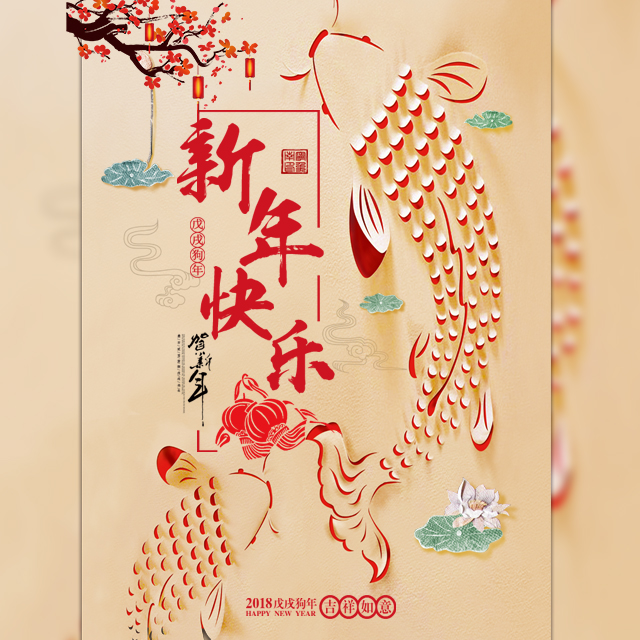 新年快乐
戊戌狗年
贺新年
2018戊戌狗年
HAPPY NEW YEAR
吉祥如意